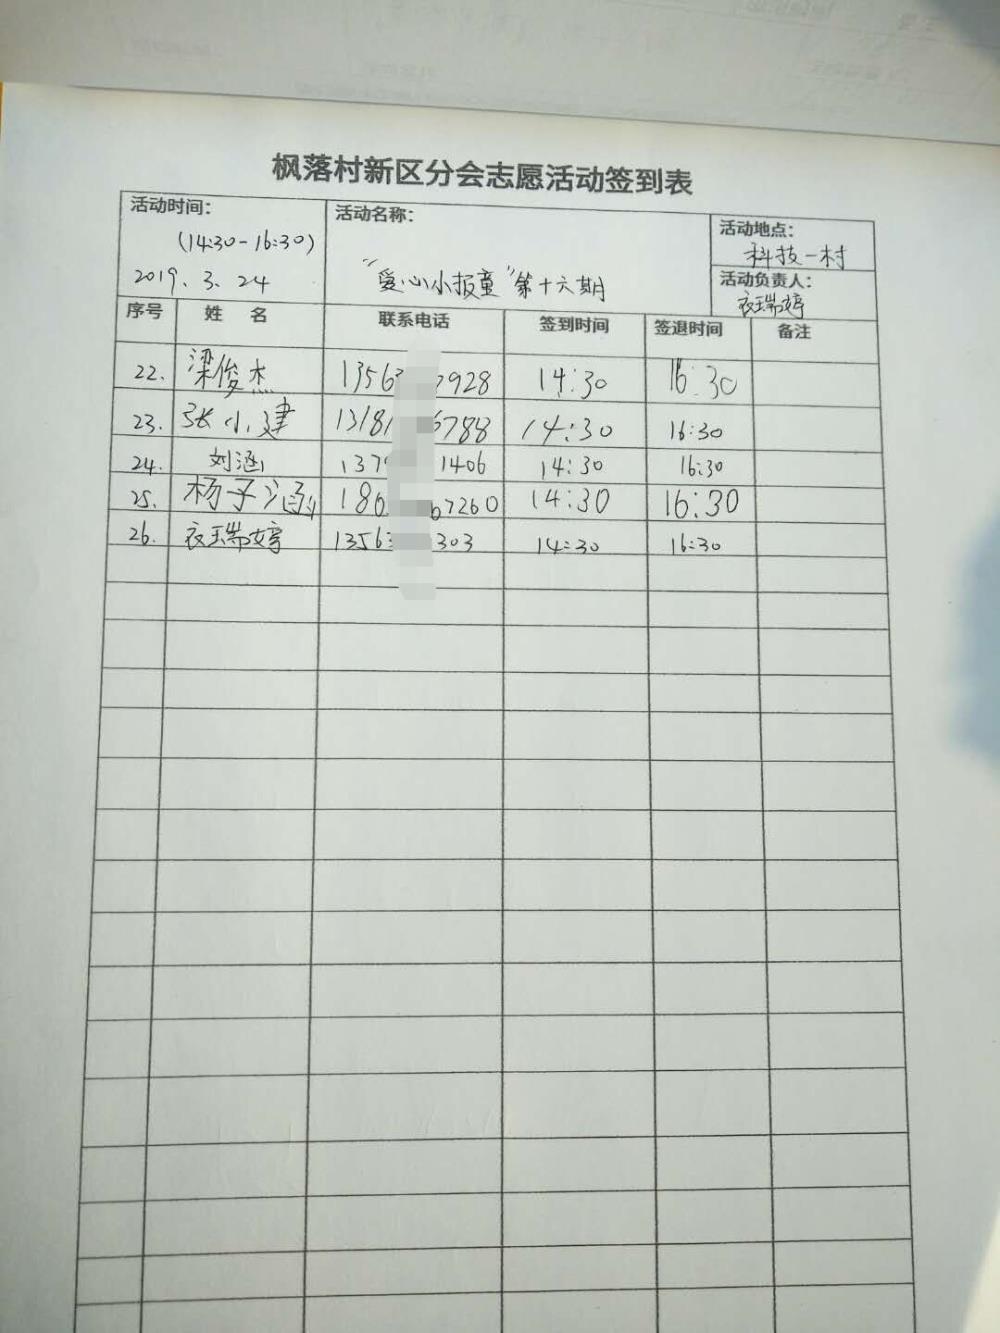 枫落村新区分会志愿活动签到表
活动时间：
(14:30-16:30)
2019. 3. 24
活动名称：
"爱心小报童"第十六期
活动地点：
科技一村
活动负责人：
衣瑞婷
序号 姓 名 联系电话 签到时间 签退时间 备注
22. 梁俊杰 1356 7928 14:30 16:30
23. 张小建 1318 6788 14:30 16:30
24. 刘涵 137 1406 14:30 16:30
25. 杨子涵 186 67260 14:30 16:30
26. 衣瑞婷 1356 303 14:30 16:30